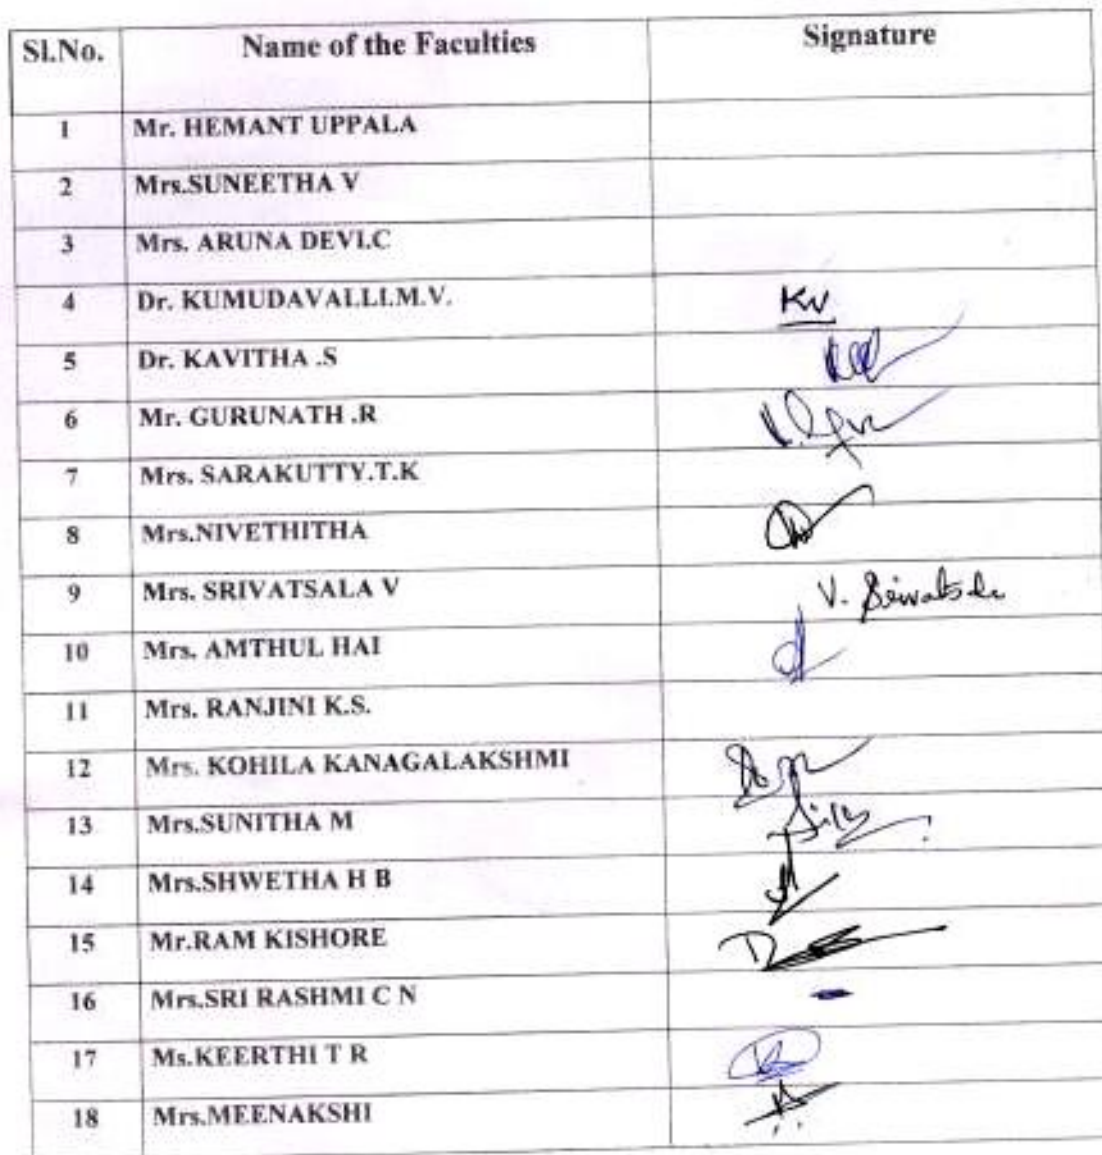 Sl.No. Name of the Faculties Signature
1 Mr. HEMANT UPPALA
2 Mrs.SUNEETHA V
3 Mrs. ARUNA DEVI.C
4 Dr. KUMUDAVALLI.M.V. KV
5 Dr. KAVITHA .S
6 Mr. GURUNATH .R
7 Mrs. SARAKUTTY.T.K
8 Mrs.NIVETHITHA
9 Mrs. SRIVATSALA V V. Srivatsala
10 Mrs. AMTHUL HAI
11 Mrs. RANJINI K.S.
12 Mrs. KOHILA KANAGALAKSHMI
13 Mrs.SUNITHA M
14 Mrs.SHWETHA H B
15 Mr.RAM KISHORE
16 Mrs.SRI RASHMI C N
17 Ms.KEERTHI T R
18 Mrs.MEENAKSHI